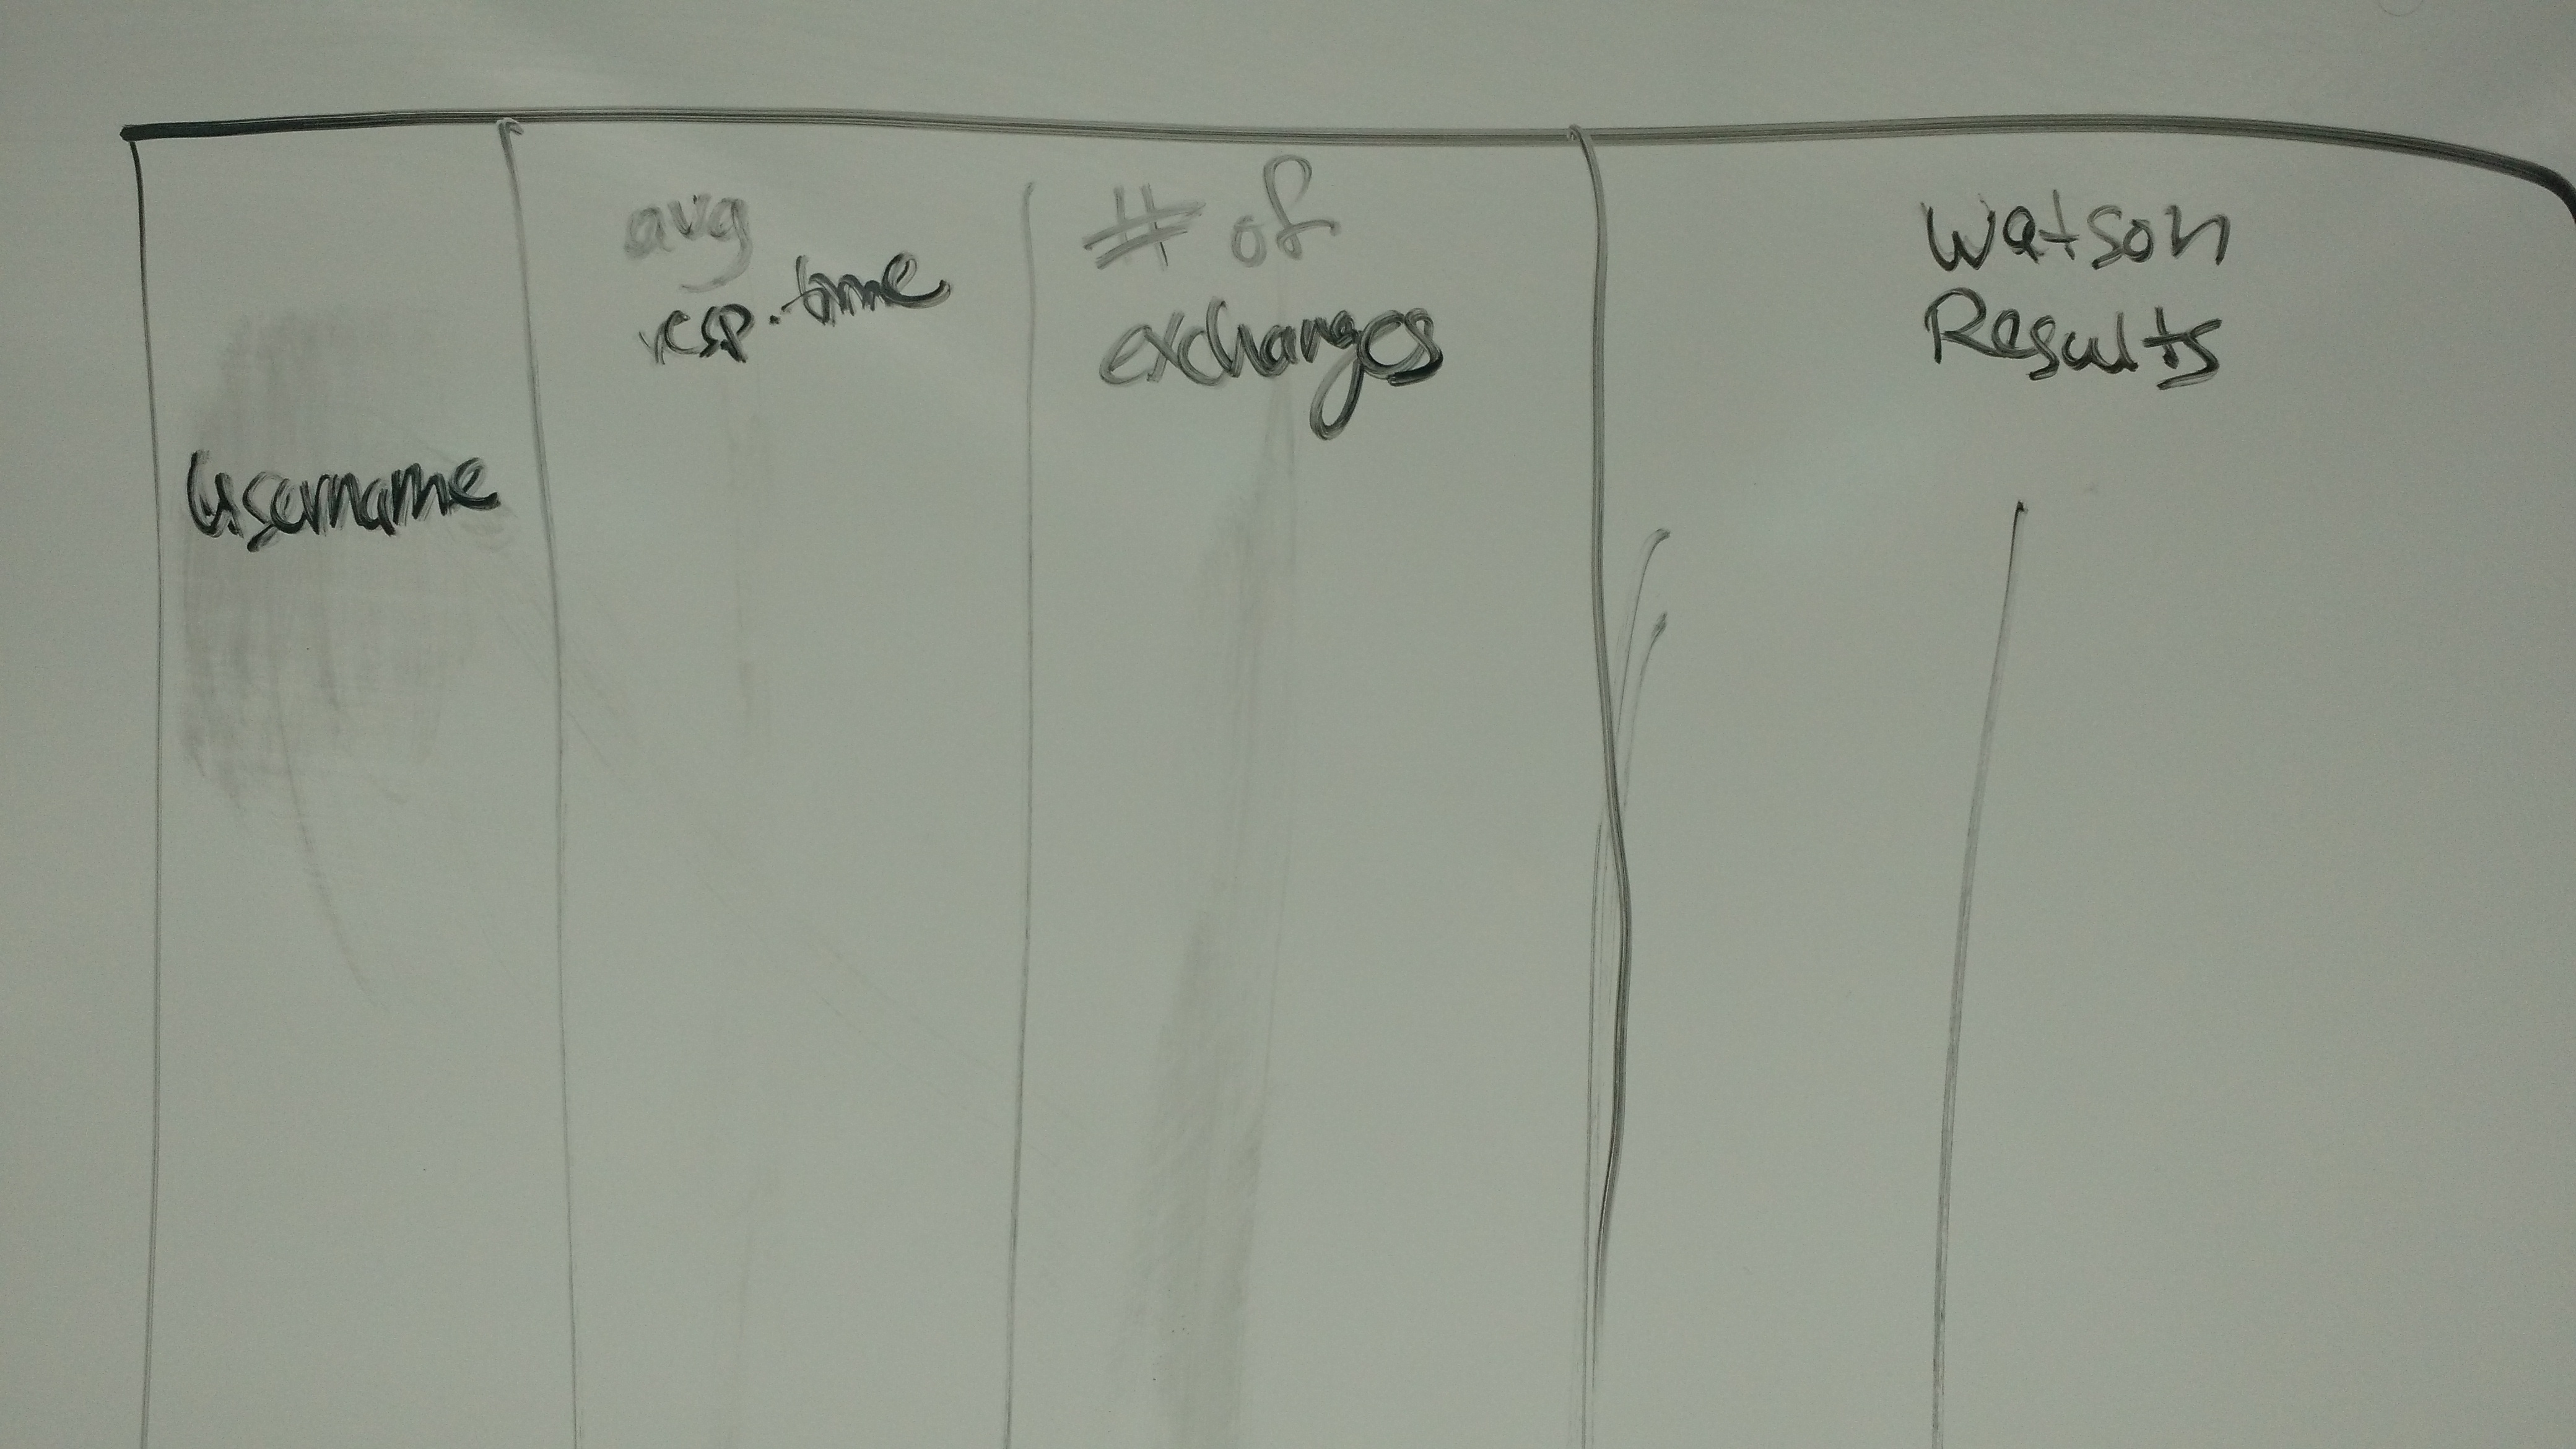 Username
avg
resp. time
# of
exchanges
Watson
Results